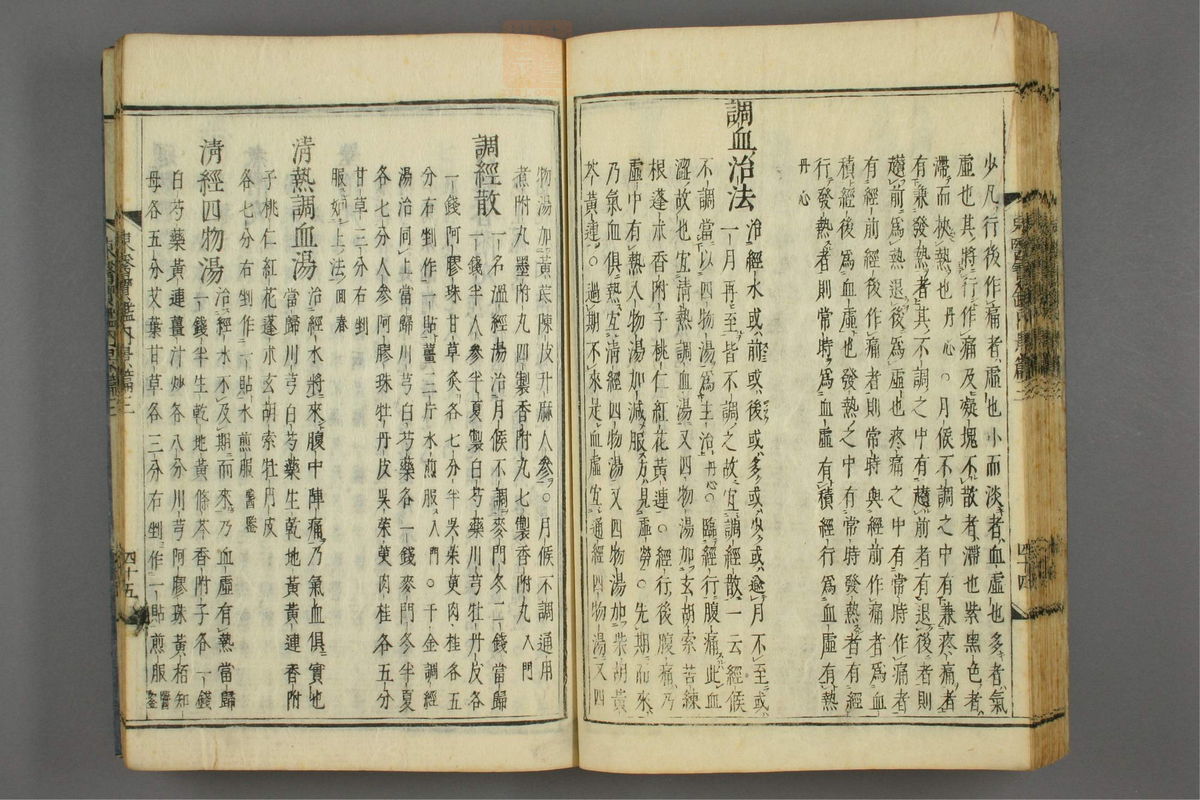 少凡行後作痛者虛也小而淡者血虛也多者氣
虛也其將行作痛及凝塊不散者滯也紫黑色者
滯而挾熱也丹心○月候不調之中有兼疼痛者
有兼發熱者其不調之中有趲前者有退後者則
趲前爲熱退後爲虛也疼痛之中有常時作痛者
有經前經後作痛者則常時與經前作痛者爲血
積經後爲血虛也發熱之中有常時發熱者有經
行發熱者則常時爲血虛有積經行爲血虛有熱
丹心
調血治法
治經水或前或後或多或少或逾月不至或
一月再至皆不調之故宜調經散一云經候
不調當以四物湯爲主治丹心○臨經行腹痛此血
澁故也宜清熱調血湯又四物湯加玄胡索苦練
根蓬朮香附子桃仁紅花黃連○經行後腹痛乃
虛中有熱入物湯加減服方見虛勞○先期而來
乃氣血俱熱宜清經四物湯又四物湯加柴胡黃
芩黃連○過期不來是血虛宜通經四物湯又四
物湯加黃茋陳皮升麻人參○月候不調通用
煮附丸墨附丸四製香附丸七製香附丸入門
調經散
一名溫經湯治月候不調麥門冬二錢當歸
一錢半人參半夏製白芍藥川芎牡丹皮各
一錢阿膠珠甘草灸各七分半吳茱萸肉桂各五
分右剉作一貼薑三片水煎服入門○千金調經
湯治同上當歸川芎白芍藥各一錢麥門冬半夏
各七分人參阿膠珠牡丹皮吳茱萸肉桂各五分
甘草三分右剉
服如上法回春
清熱調血湯
治經水將來腹中陣痛乃氣血俱實也
當歸川芎白芍藥生乾地黃黃連香附
子桃仁紅花蓬朮玄胡索牡丹皮
各七分右剉作一貼水煎服醫鑑
清經四物湯
治經水不及期而來乃血虛有熱當歸
一錢半生乾地黃條芩香附子各一錢
白芍藥黃連薑汁炒各八分川芎阿膠珠黃栢知
母各五分艾葉甘草各三分右剉作一貼煎服醫鑑
東醫寶鑑內景篇三
四十五